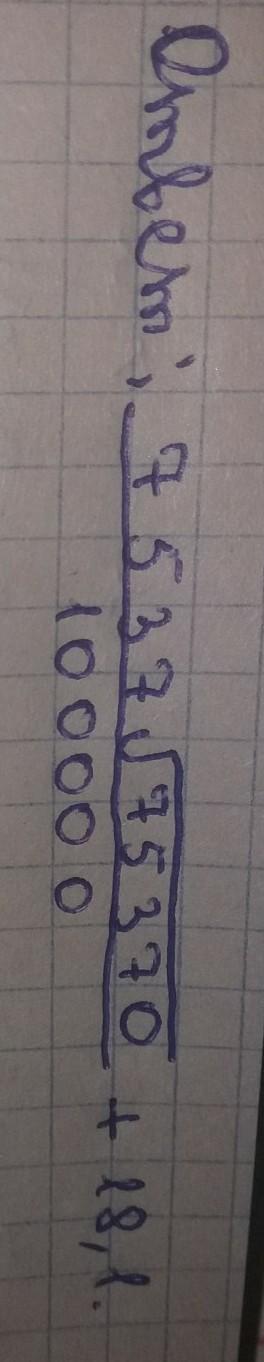 Ответ: 7537√75370 / 10000 + 18,1.